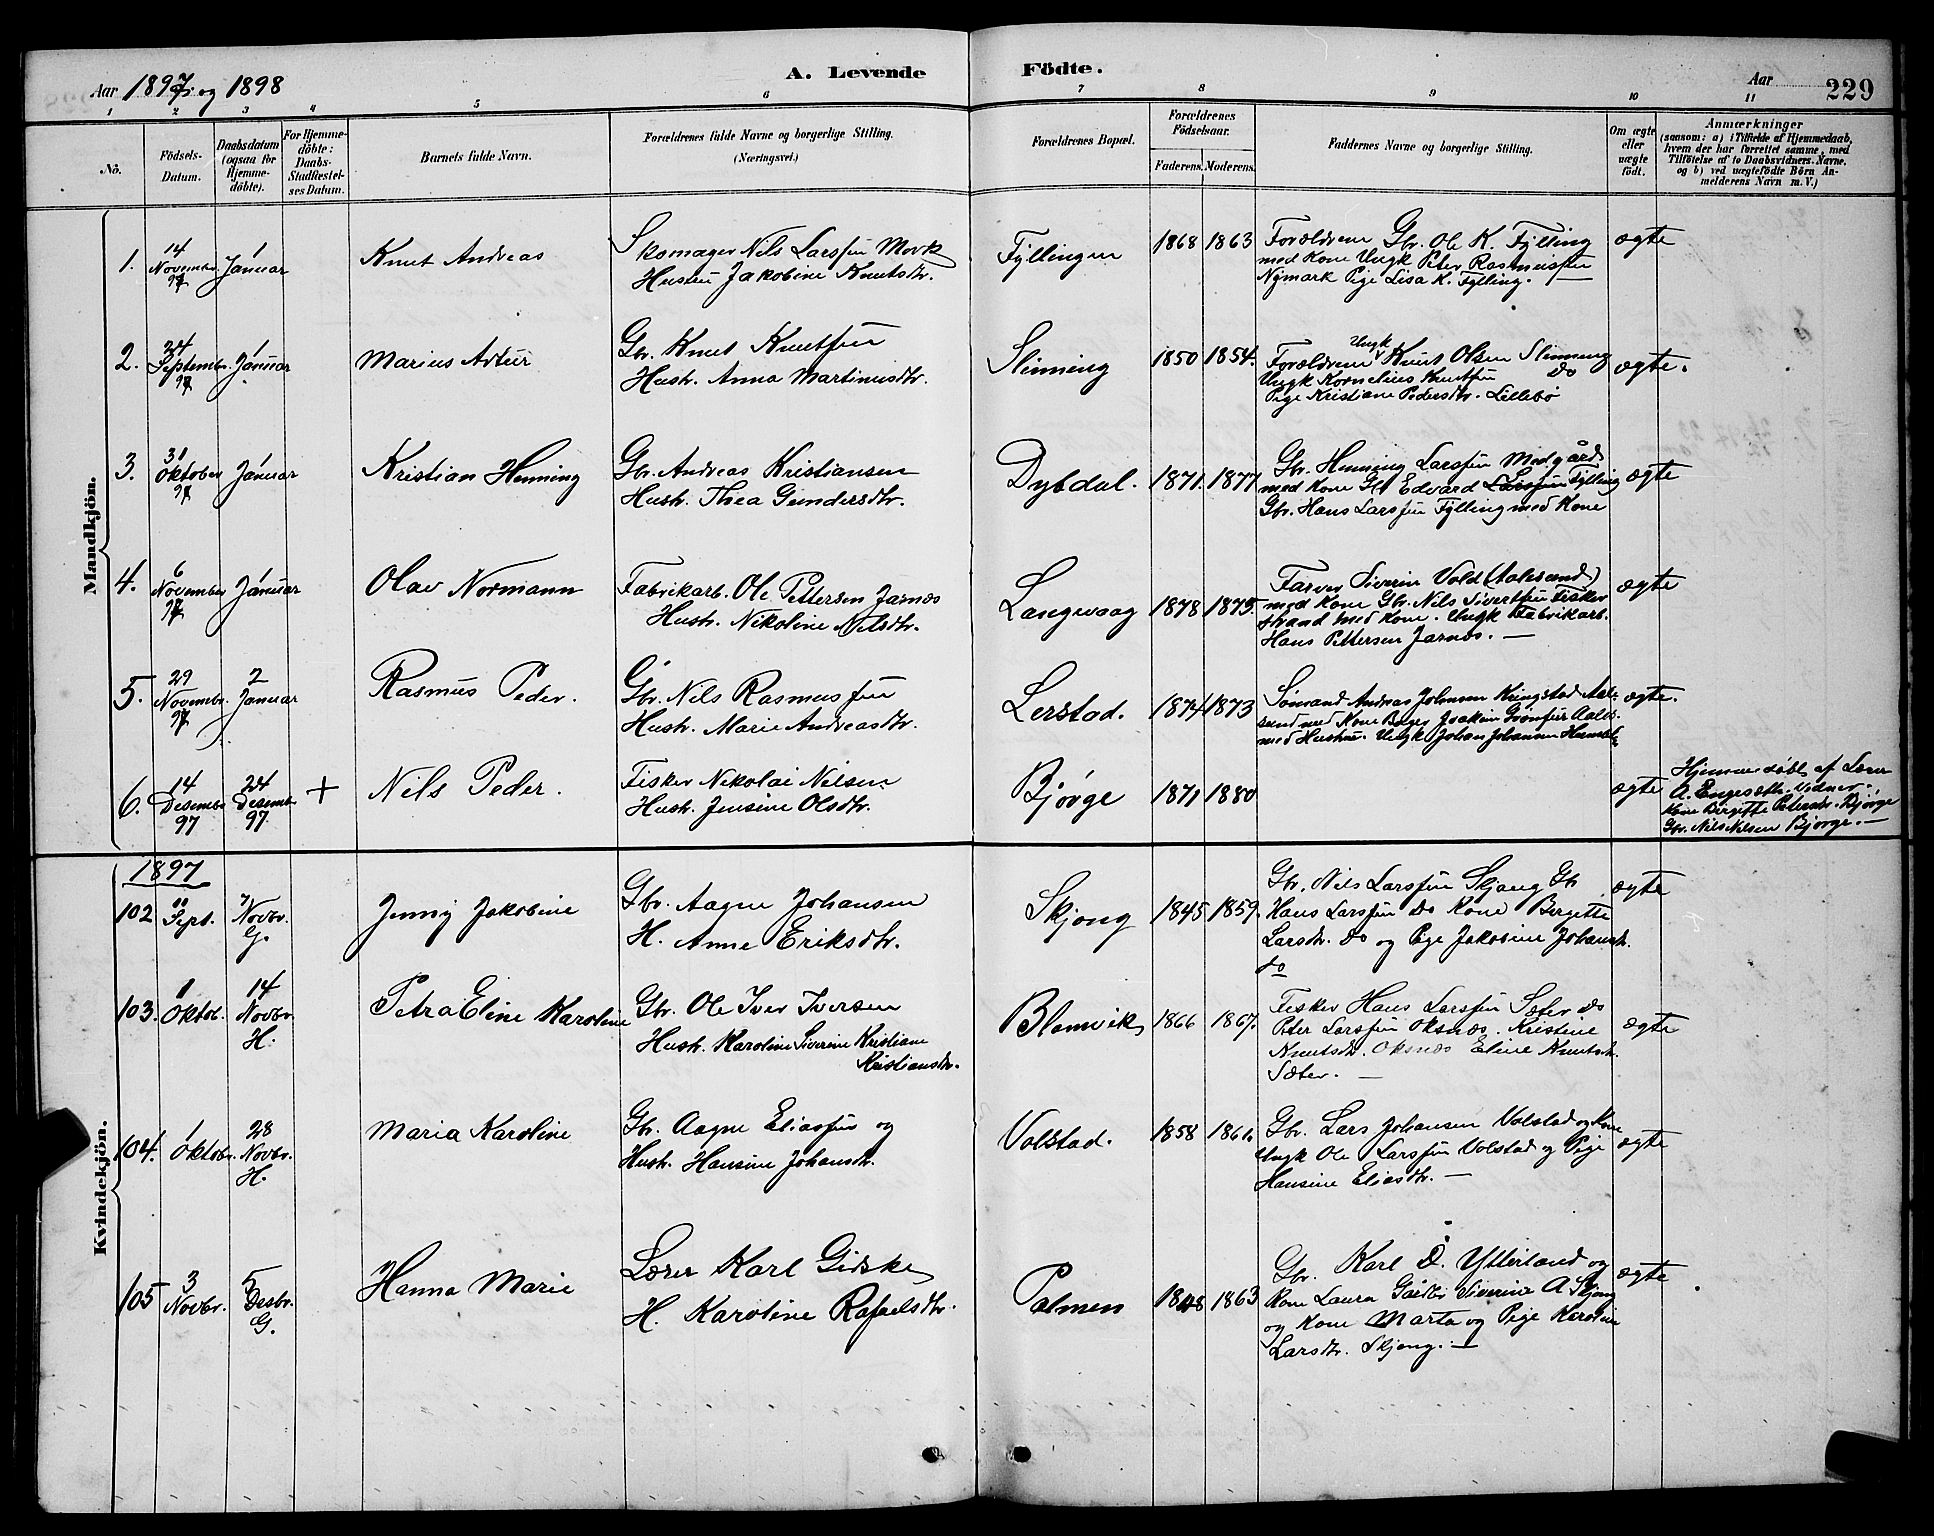 Aar 1897 og 1898
A. Levende Födte.
Aar
229
1 2 3 4 5 6 7 8 9 10 11
No.
Födsels-
Datum.
Daabsdatum
(ogsaa for
Hjemme-
döbte).
For Hjemme-
döbte:
Daabs-
Stadfæstel-
ses Datum.
Barnets fulde Navn.
Forældrenes fulde Navne og borgerlige Stilling.
(Næringsvei.)
Forældrenes Bopæl.
Forældrenes
Födselsaar.
Faderens. Moderens.
Faddernes Navne og borgerlige Stilling.
Om ægte
eller
uægte
födt.
Anmærkninger
(saasom: a) i Tilfælde af Hjemmedaab,
hvem der har forrettet samme, med
Tilföielse af to Daabsvidners Navne,
og b) ved uægtefödte Börn An-
melderens Navn m. V.)
Mandkjön.
1.
14
Novembr.
97
1
Januar
Knut Andreas
Skomager Nils Larssen Mork
Hustru Jakobine Knutsdtr.
Fyllingen
1868 1863
Forældrene Gbr. Ole K. Fylling
med Kone Ungk Peter Rasmussen
Nymark Pige Lisa K. Fylling. —
ægte
2.
24
Septembr.
97
1
Januar
Marius Artur
Gbr. Knut Knutsen
Hustr. Anna Martinusdtr.
Slinning
1850 1854.
Ungk
Forældrene Knut Olsen Slinning
Ungk Kornelius Knutsen Do
Pige Kristiane Pedersdtr. Lillebø
ægte.
3.
31
Oktober
97
1
Januar
Kristian Henning
Gbr. Andreas Kristiansen
Hustr. Thea Gundersdtr.
Dybdal.
1871. 1877
Gbr. Henning Larssen Medgård
med Kone Gbr Edvard Larssen Fylling
Gbr. Hans Larssen Fylling med Kone
ægte
4.
6
November
97
1
Januar
Olav Normann
Fabrikarb. Ole Pettersen Jarnæs
Hustr. Nikoline Nilsdtr.
Langevaag
1878 1875.
Farver Siverin Vold (Aalesund)
med Kone Gbr. Nils Sivertsen Fisker
strand med Kone. Ungk Fabrikarb.
Hans Pettersen Jarnæs. —
ægte
5.
29
Novembr.
97
2
Januar
Rasmus Peder.
Gbr. Nils Rasmussen
Hustr. Marie Andreasdtr.
Lerstad.
1874 1873
Sømand Andreas Johansen Ringstad Aale-
sund med Kone Bager Joakim Aales.
med Hustru. Ungk Johan Johansen
ægte.
6.
14
Desembr
97
24
Desembr
97
+
Nils Peder.
Fisker Nikolai Nilsen
Hustr. Jensine Olsdtr.
Bjørge
1871 1880
ægte
Hjemmedøbt af Lærer
A. Engesæth. Vidner.
Kone Bergitte Petersdtr. Bjørge
Gbr. Nils Nilsen Bjørge. —
Kvindekjön.
1897
102
11
Sept.
7
Novbr.
G.
Jenny Jakobine
Gbr. Aagne Johansen
H. Anne Eriksdtr.
Skjong
1845 1859.
Gbr. Nils Larssen Skjong Gbr
Hans Larssen Do Kone Bergitte
Larsdtr. Do og Pige Jakobine Johansdtr.
do
ægte
103.
1
Oktob.
14
Novbr.
H.
Petra Eline Karoline
Gbr. Ole Iver Iversen
Hustr. Karoline Siverine Kristiane
Kristiansdtr.
Blomvik
1866 1867.
Fisker Hans Larssen Sæter Do
Peter Larssen Oksnæs. Kristine
Knutsdtr. Oksnæs Eline Knutsdtr.
Sæter. —
ægte
104.
1
Oktobr.
28
Novbr.
H.
Maria Karoline
Gbr. Aagne Eliassen og
Hustr. Hansine Johansdtr.
Valstad.
1858 1861.
Gbr. Lars Johansen Valstad og Kone
Ungk Ole Larssen Valstad og Pige
Hansine Eliasdtr. —
ægte
105
3
Novbr.
5
Desbr.
G.
Hanna Marie
Lærer Karl Gidske
H. Karoline Rafaelsdtr.
Palmen
1848 1863
Gbr. Karl O. Ytterland og
Kone Laura Siverine A Skjong
og Kone Marta og Pige Karoline
Larsdtr. Skjong. —
ægte